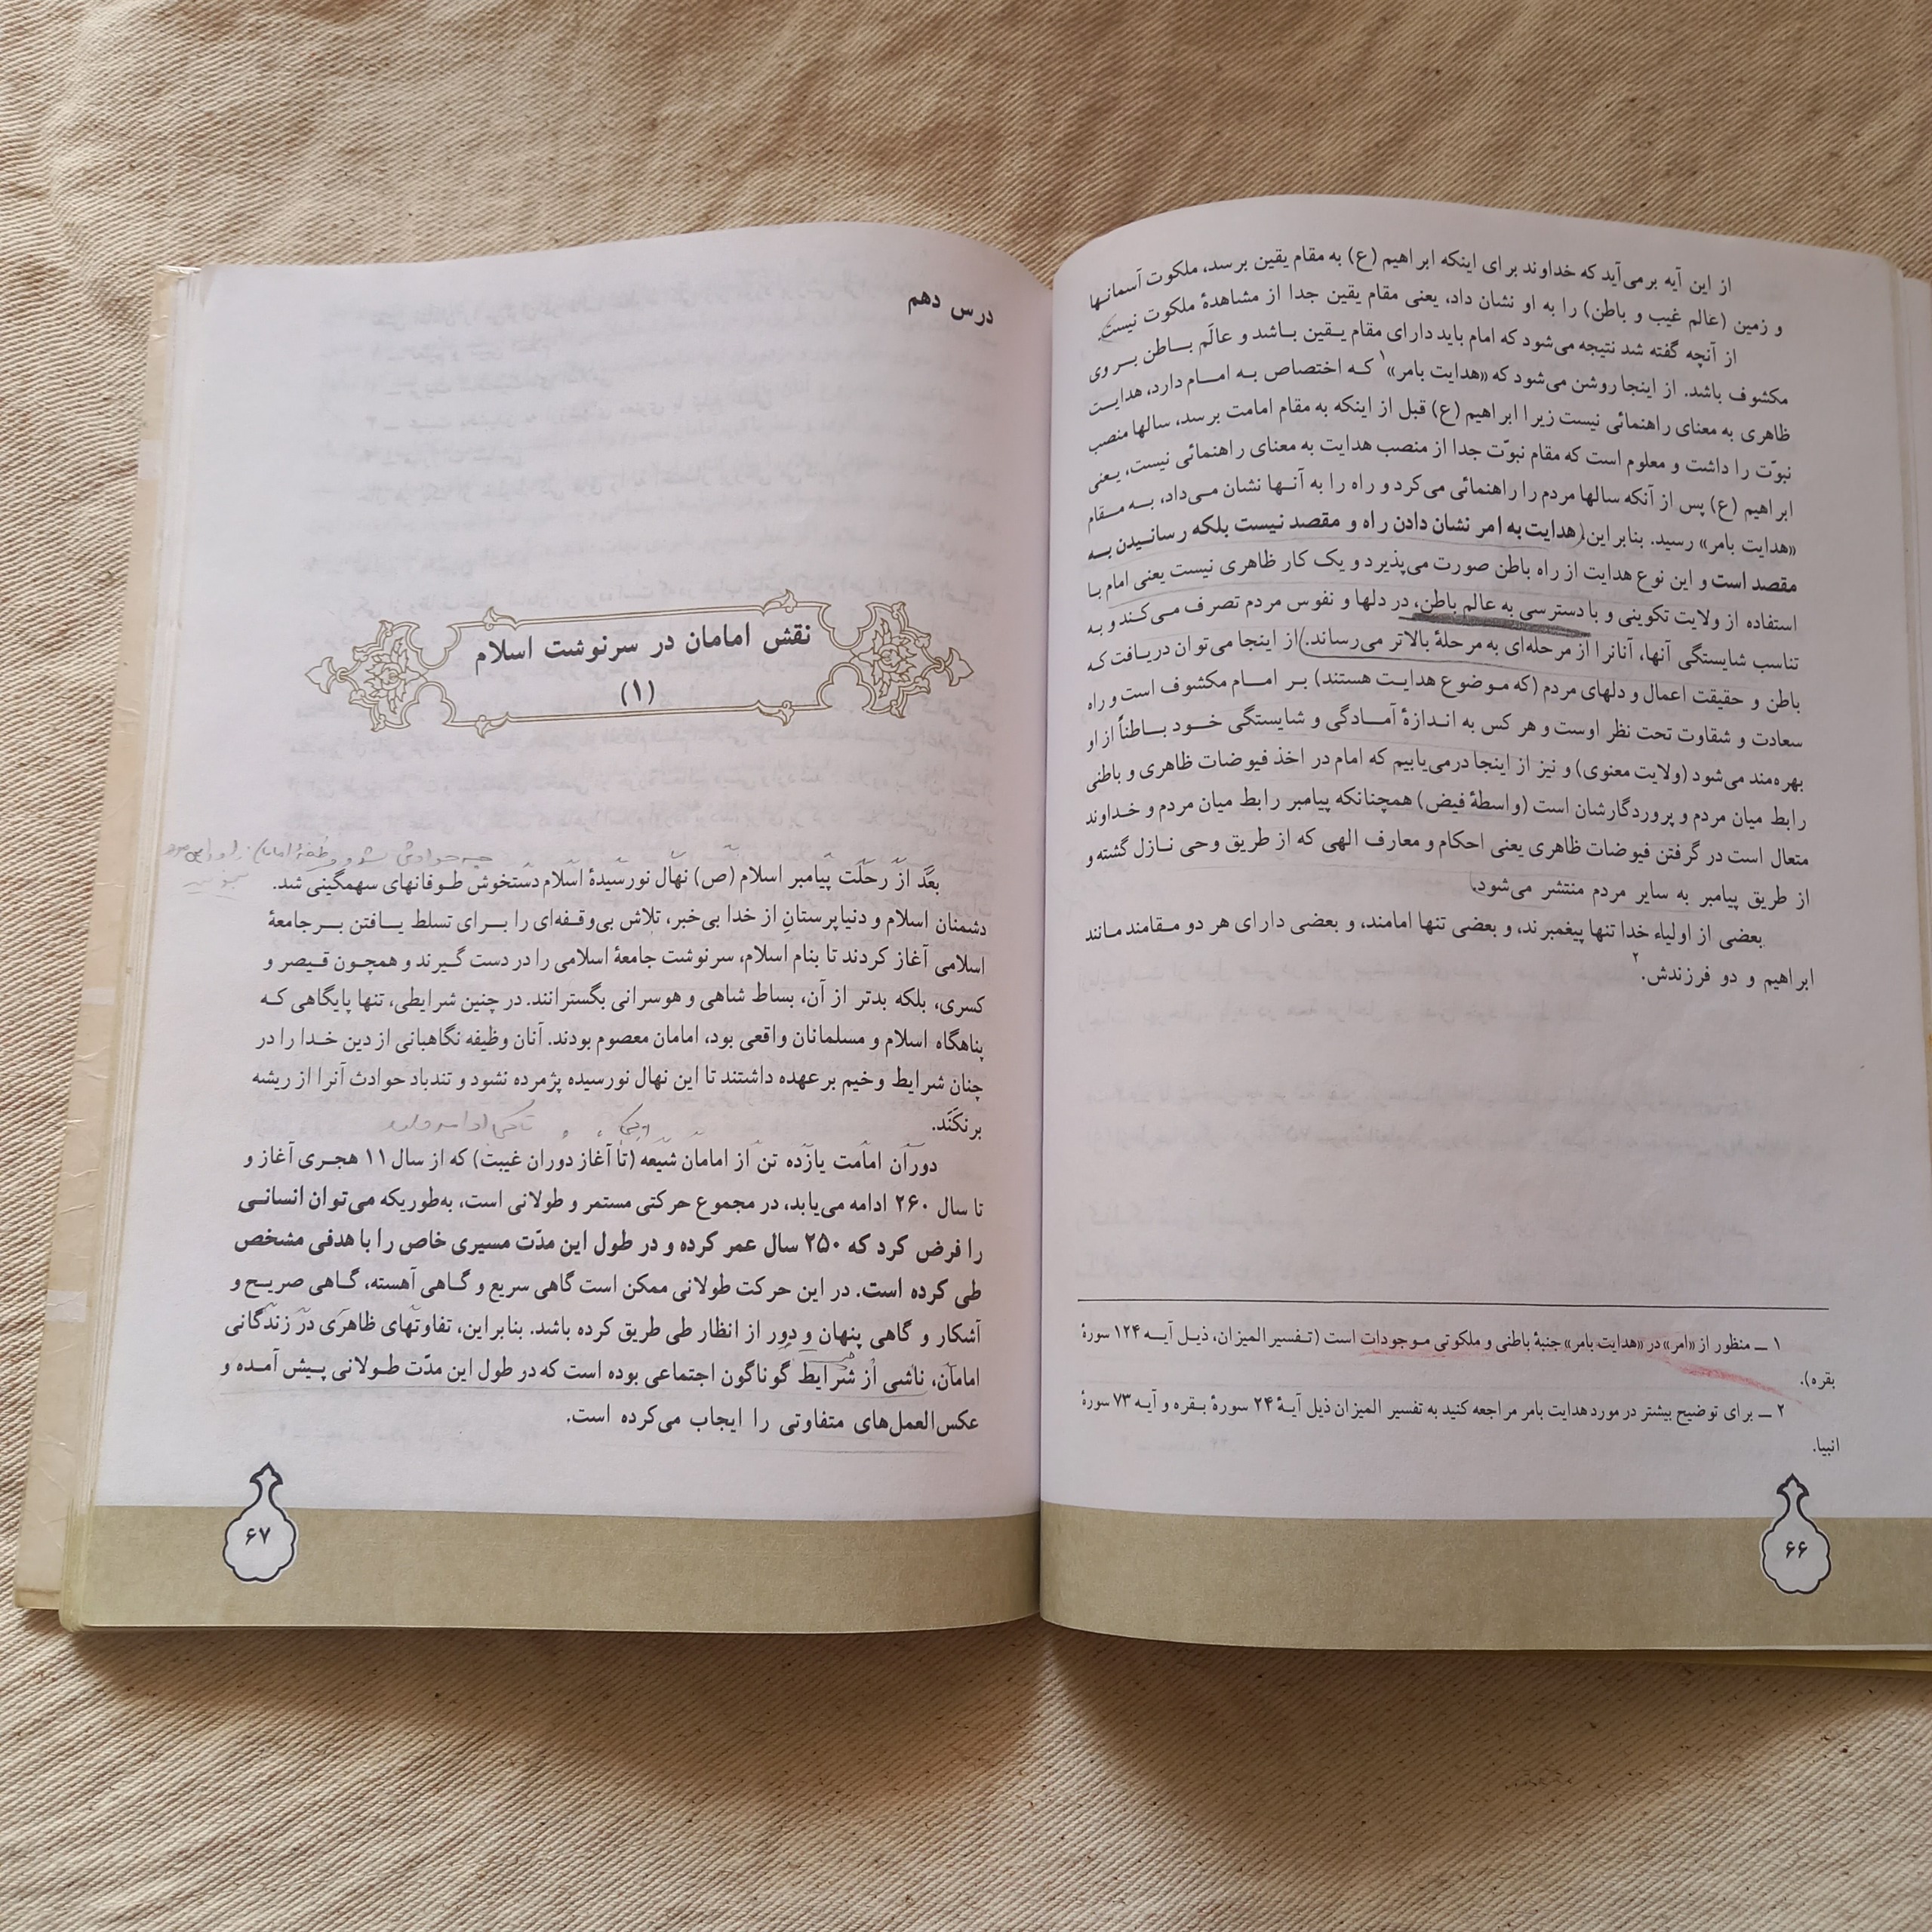 از این آیه برمی‌آید که خداوند برای اینکه ابراهیم (ع) به مقام یقین برسد، ملکوت آسمانها
و زمین (عالم غیب و باطن) را به او نشان داد، یعنی مقام یقین جدا از مشاهدهٔ ملکوت نیست.
از آنچه گفته شد نتیجه می‌شود که امام باید دارای مقام یقین باشد و عالَم باطن بر وی
مکشوف باشد. از اینجا روشن می‌شود که «هدایت بامر»۱ که اختصاص به امام دارد، هدایت
ظاهری به معنای راهنمائی نیست زیرا ابراهیم (ع) قبل از اینکه به مقام امامت برسد، سالها منصب
نبوّت را داشت و معلوم است که مقام نبوّت جدا از منصب هدایت به معنای راهنمائی نیست، یعنی
ابراهیم (ع) پس از آنکه سالها مردم را راهنمائی می‌کرد و راه را به آنها نشان می‌داد، به مقام
«هدایت بامر» رسید. بنابراین هدایت به امر نشان دادن راه و مقصد نیست بلکه رسانیدن به
مقصد است و این نوع هدایت از راه باطن صورت می‌پذیرد و یک کار ظاهری نیست یعنی امام با
استفاده از ولایت تکوینی و با دسترسی به عالم باطن، در دلها و نفوس مردم تصرف می‌کند و به
تناسب شایستگی آنها، آنانرا از مرحله‌ای به مرحلهٔ بالاتر می‌رساند. از اینجا می‌توان دریافت که
باطن و حقیقت اعمال و دلهای مردم (که موضوع هدایت هستند) بر امام مکشوف است و راه
سعادت و شقاوت تحت نظر اوست و هر کس به اندازهٔ آمادگی و شایستگی خود باطناً از او
بهره‌مند می‌شود (ولایت معنوی) و نیز از اینجا درمی‌یابیم که امام در اخذ فیوضات ظاهری و باطنی
رابط میان مردم و پروردگارشان است (واسطهٔ فیض) همچنانکه پیامبر رابط میان مردم و خداوند
متعال است در گرفتن فیوضات ظاهری یعنی احکام و معارف الهی که از طریق وحی نازل گشته و
از طریق پیامبر به سایر مردم منتشر می‌شود.
بعضی از اولیاء خدا تنها پیغمبرند، و بعضی تنها امامند، و بعضی دارای هر دو مقامند مانند
ابراهیم و دو فرزندش.۲
۱ ــ منظور از «امر» در «هدایت بامر» جنبهٔ باطنی و ملکوتی موجودات است (تفسیر المیزان، ذیل آیه ۱۲۴ سورهٔ
بقره).
۲ ــ برای توضیح بیشتر در مورد هدایت بامر مراجعه کنید به تفسیر المیزان ذیل آیهٔ ۲۴ سورهٔ بقره و آیه ۷۳ سورهٔ
انبیا.
۶۶
درس دهم
نقش امامان در سرنوشت اسلام
(۱)
چه حوادثی شد و وظفهٔ امامان را در این مورد
بعد از رحلت پیامبر اسلام (ص) نهال نورسیدهٔ اسلام دستخوش طوفانهای سهمگینی شد.
دشمنان اسلام و دنیاپرستانِ از خدا بی‌خبر، تلاش بی‌وقفه‌ای را برای تسلط یافتن بر جامعهٔ
اسلامی آغاز کردند تا بنام اسلام، سرنوشت جامعهٔ اسلامی را در دست گیرند و همچون قیصر و
کسری، بلکه بدتر از آن، بساط شاهی و هوسرانی بگسترانند. در چنین شرایطی، تنها پایگاهی که
پناهگاه اسلام و مسلمانان واقعی بود، امامان معصوم بودند. آنان وظیفه نگاهبانی از دین خدا را در
چنان شرایط وخیم برعهده داشتند تا این نهال نورسیده پژمرده نشود و تندباد حوادث آنرا از ریشه
برنکَنَد.
دوران امامت یازده تن از امامان شیعه (تا آغاز دوران غیبت) که از سال ۱۱ هجری آغاز و
تا سال ۲۶۰ ادامه می‌یابد، در مجموع حرکتی مستمر و طولانی است، به‌طوریکه می‌توان انسانی
را فرض کرد که ۲۵۰ سال عمر کرده و در طول این مدّت مسیری خاص را با هدفی مشخص
طی کرده است. در این حرکت طولانی ممکن است گاهی سریع و گاهی آهسته، گاهی صریح و
آشکار و گاهی پنهان و دور از انظار طی طریق کرده باشد. بنابراین، تفاوتهای ظاهری در زندگانی
امامان، ناشی از شرایط گوناگون اجتماعی بوده است که در طول این مدّت طولانی پیش آمده و
عکس‌العمل‌های متفاوتی را ایجاب می‌کرده است.
۶۷